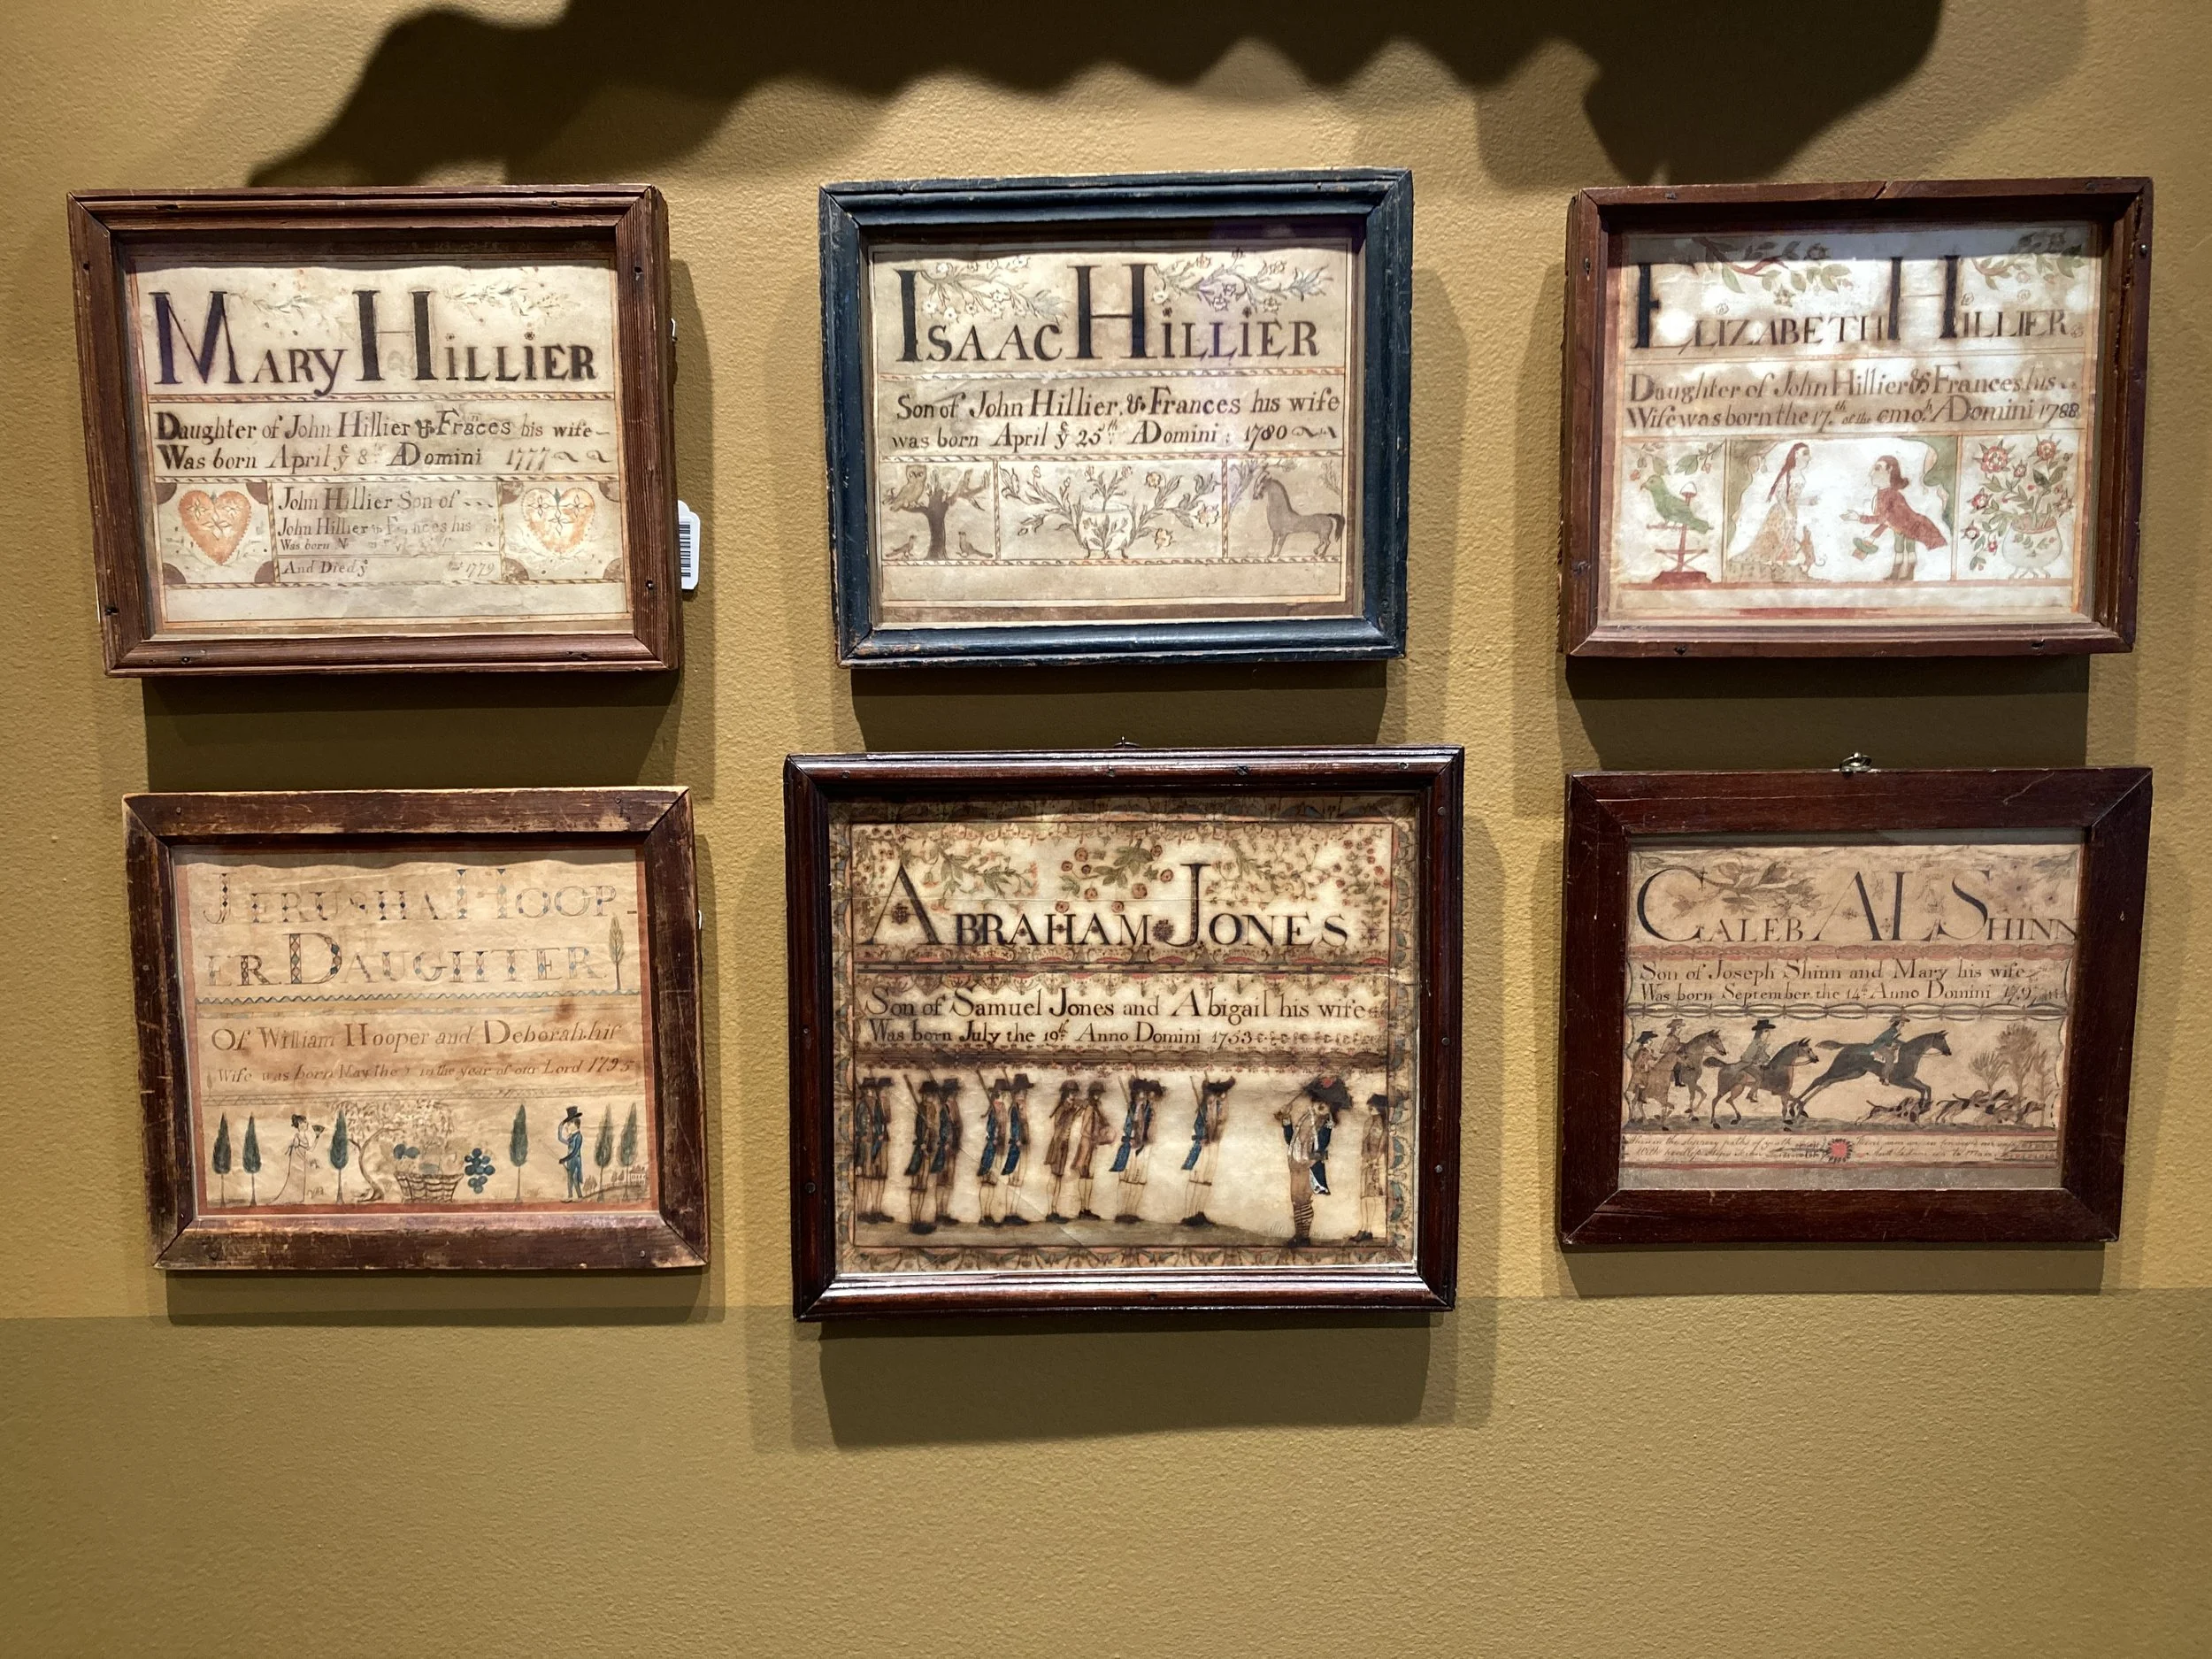 MARY HILLIER
Daughter of John Hillier & Fraces his wife
Was born April ye 8th ADomini 1777
John Hillier Son of
John Hillier & Frances his
Was born
And Died ye 1779
ISAAC HILLIER
Son of John Hillier, & Frances his wife
was born April ye 25th ADomini: 1780
ELIZABETH HILLIER
Daughter of John Hillier & Frances his
Wife was born the 17th of the 6mo. ADomini 1788
JERUSHA HOOP-
ER DAUGHTER
Of William Hooper and Deborah his
Wife was born May the in the year of our Lord 1795
ABRAHAM JONES
Son of Samuel Jones and Abigail his wife
Was born July the 19th Anno Domini 1753
CALEB AL SHINN
Son of Joseph Shinn and Mary his wife
Was born September the 14th Anno Domini
the slippery paths of youth
With